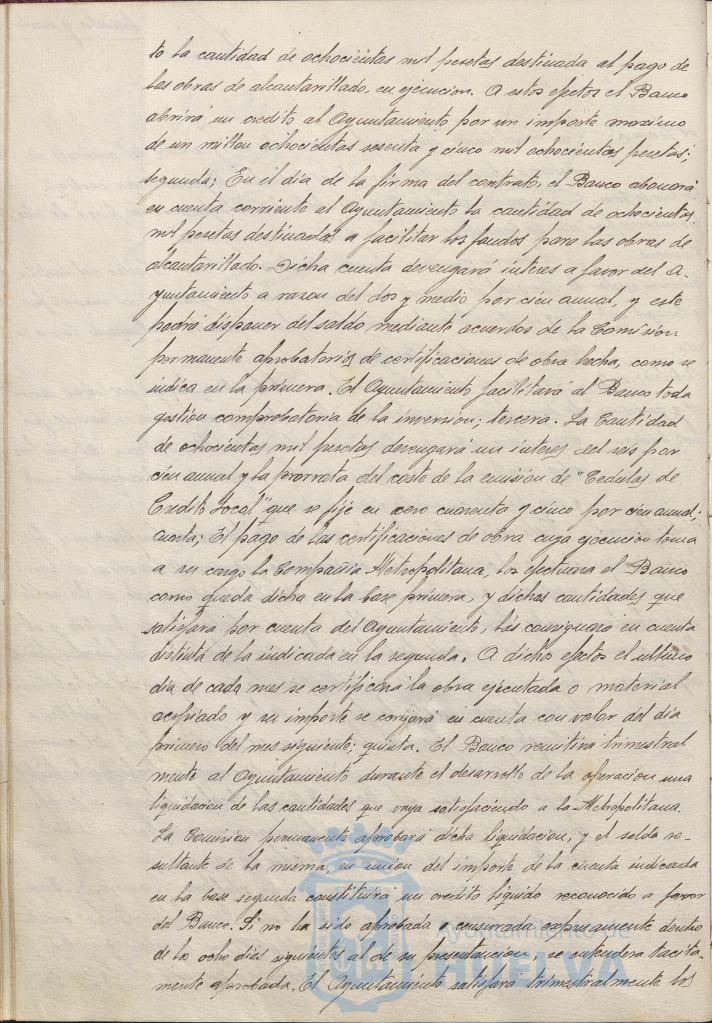 to la cantidad de ochocientas mil pesetas destinada al pago de
las obras de alcantarillado, en ejecucion. A estos efectos el Banco
abrirá un credito al Ayuntamiento por un importe maximo
de un millon ochocientas sesenta y cinco mil ochocientas pesetas;
segunda; En el dia de la firma del contrato, el Banco abonará
en cuenta corriente al Ayuntamiento la cantidad de ochocientas
mil pesetas destinadas a facilitar los fondos para las obras de
alcantarillado. Dicha cuenta devengará interes a favor del A-
yuntamiento a razon del dos y medio por cien anual, y este
podrá disponer del saldo mediante acuerdos de la Comision
permanente aprobatorios de certificaciones de obra hecha, como se
indica en la primera. El Ayuntamiento facilitará al Banco toda
gestion comprobatoria de la inversion; tercera. La Cantidad
de ochocientas mil pesetas devengará un interes del seis por
cien anual y la prorrata del coste de la emision de "Cedulas de
Credito Local" que se fije en cero cuarenta y cinco por cien anual;
cuarta; El pago de las certificaciones de obra cuya ejecucion toma
a su cargo la Compañia Metropolitana, los efectuara el Banco
como queda dicha en la base primera, y dichas cantidades que
satisfara por cuenta del Ayuntamiento, las consignara en cuenta
distinta de la indicada en la segunda. A dicho efectos el ultimo
dia de cada mes se certificará la obra ejecutada o material
acopiado y su importe se cargará en cuenta con valor del dia
primero del mes siguiente; quinta. El Banco remitirá trimestral
mente al Ayuntamiento durante el desarrollo de la operacion una
liquidacion de las cantidades que vaya satisfaciendo a la Metropolitana.
La Comision permanente aprobará dicha liquidacion, y el saldo re-
sultante de la misma, en union del importe de la cuenta indicada
en la base segunda constituirá un credito liquido reconocido a favor
del Banco. Si no ha sido aprobada o censurada expresamente dentro
de los ocho dias siguientes al de su presentacion, se entendera tacita-
mente aprobada. El Ayuntamiento satisfará trimestralmente los
Ayuntamiento de
HUELVA